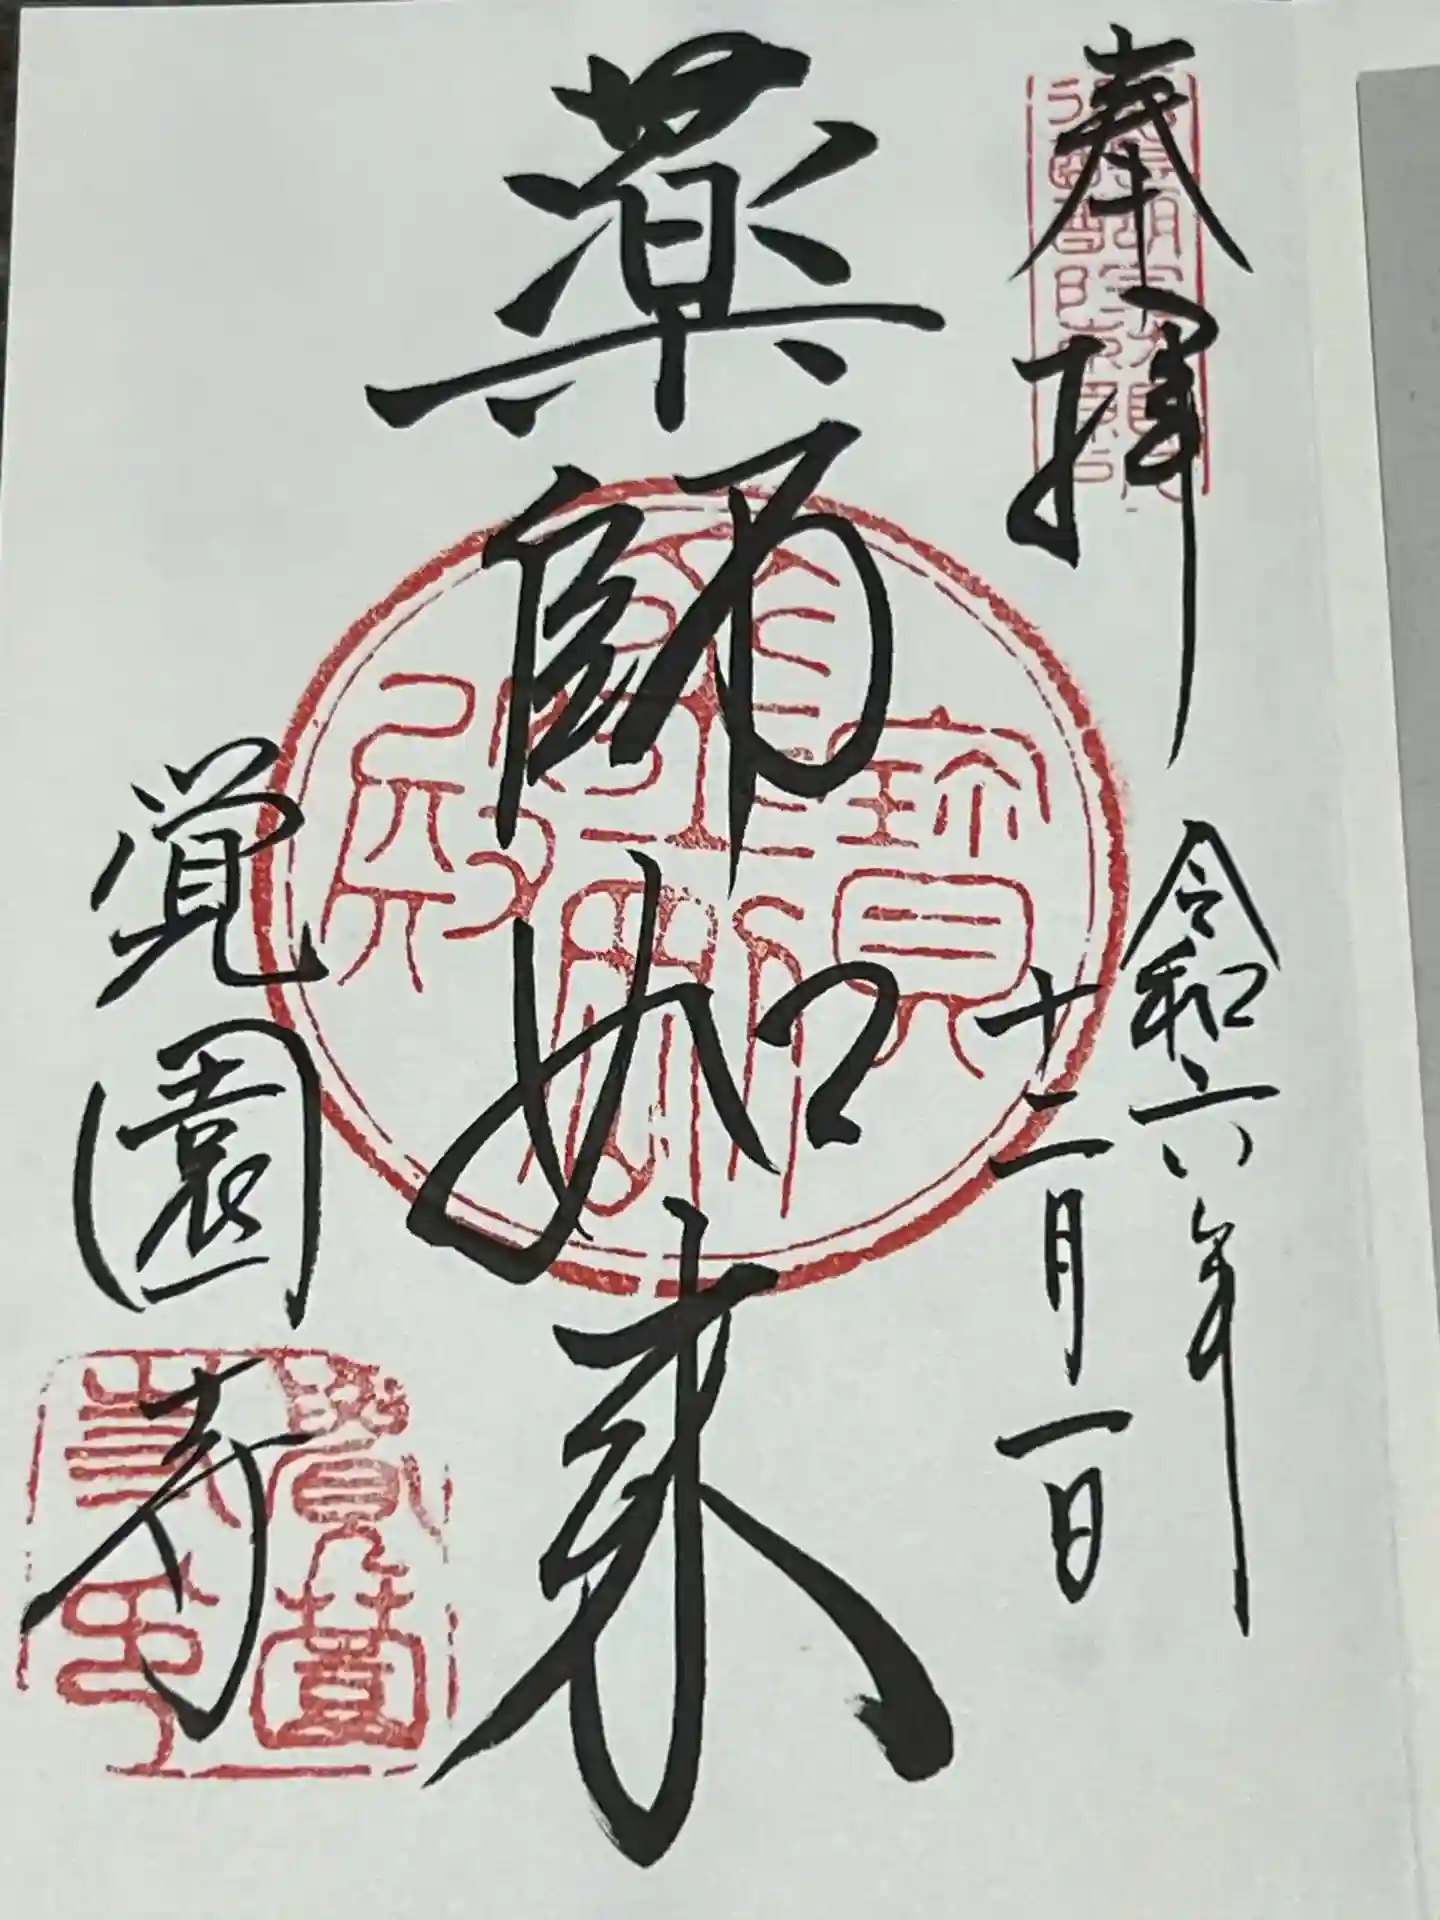 奉拝
令和六年
十二月一日
薬師如来
覚園寺